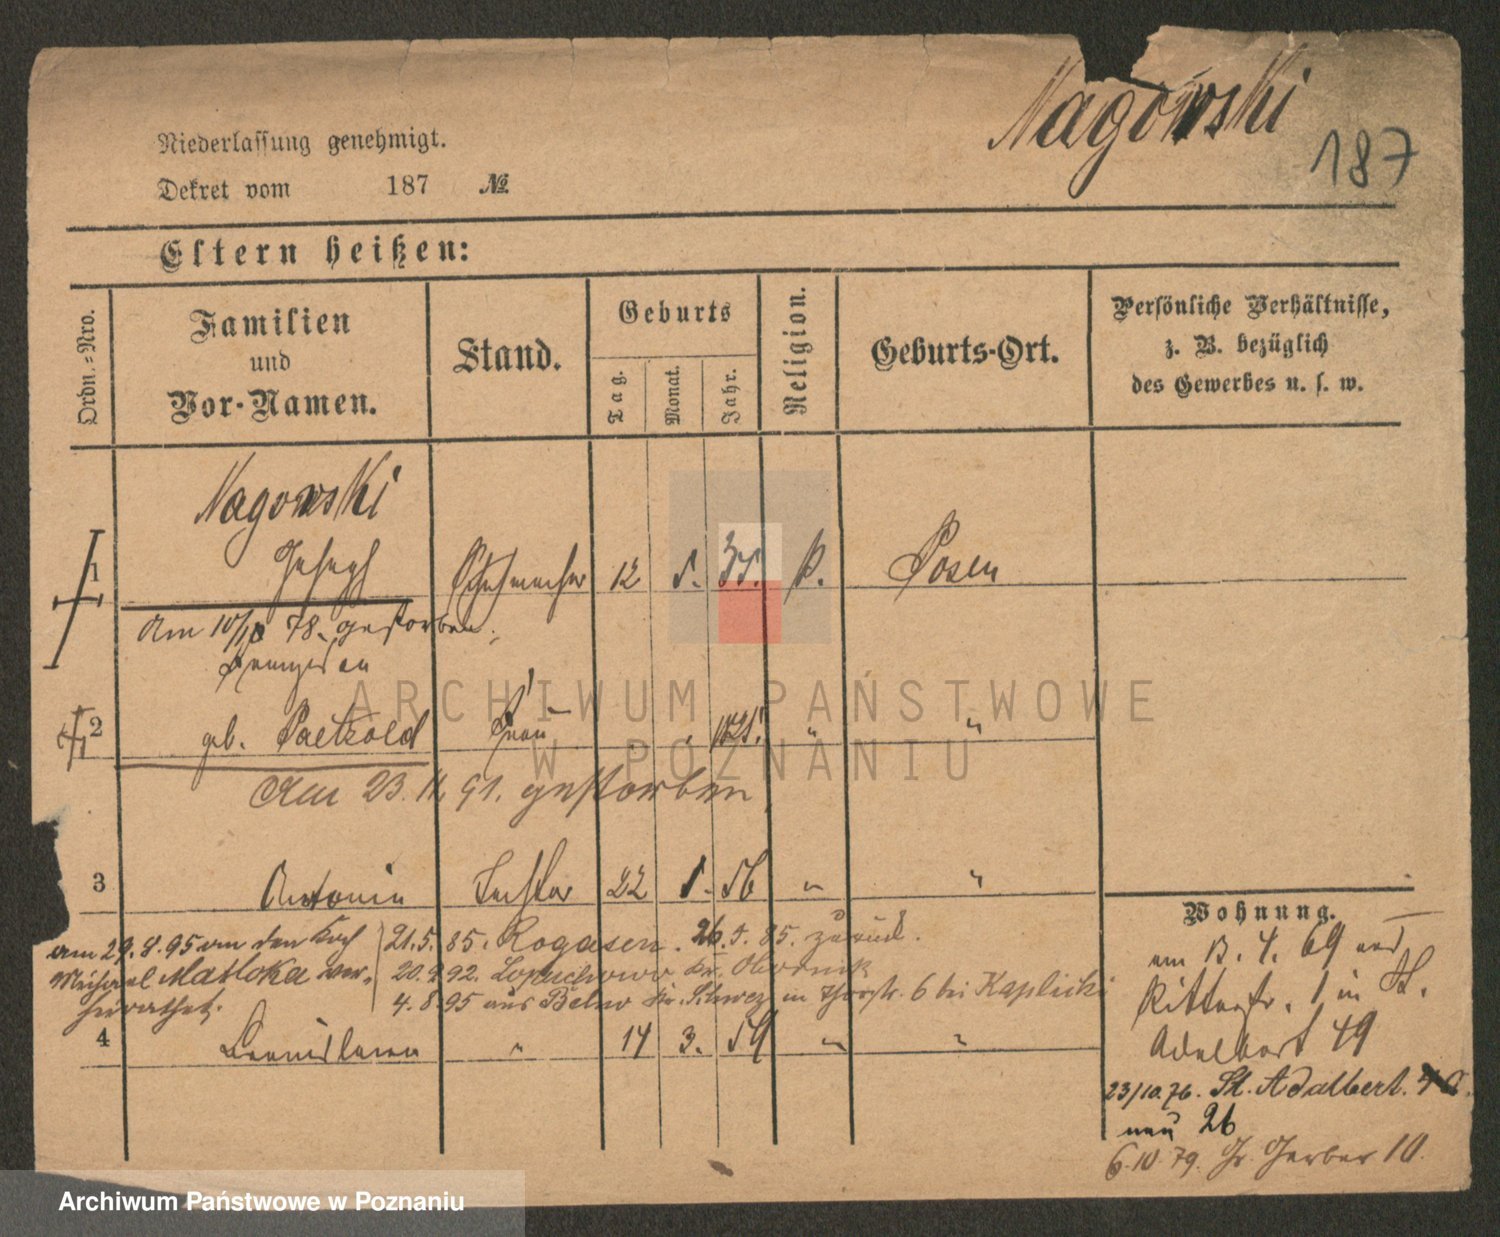 Nagowski
187
Niederlassung genehmigt.
Dekret vom 187 №
Eltern heißen:
Ordn.-Nro.
Familien
und
Vor-Namen.
Stand.
Geburts
Tag.
Monat.
Jahr.
Religion.
Geburts-Ort.
Persönliche Verhältnisse,
z. B. bezüglich
des Gewerbes u. s. w.
Nagowski
1 Joseph Schuhmacher 12 3. 35. k. Posen
Am 10/10 78. gestorben.
2 geb. Paetzold Frau 1825. " "
Am 23. 11. 91. gestorben
3 Antonie Tochter 22 1. 56 " "
am 29.8.95 an den Koch
Michael Matloka ver-
heirathet.
21.5.85. Rogasen. 26.5.85. zurück.
20.9.92. Kr. Obornik
4.8.95 aus Kr. Schwez in Thorstr. 6 bei Kaplicki
4 " 14 3. 59 " "
Wohnung.
am 13. 4. 69 aus
Ritterstr. 1 in St.
Adelbert 49
23/10.76. St. Adalbert.
neu 26
6.10.79. Gr. Gerber 10.
ARCHIWUM PAŃSTWOWE
W POZNANIU
Archiwum Państwowe w Poznaniu